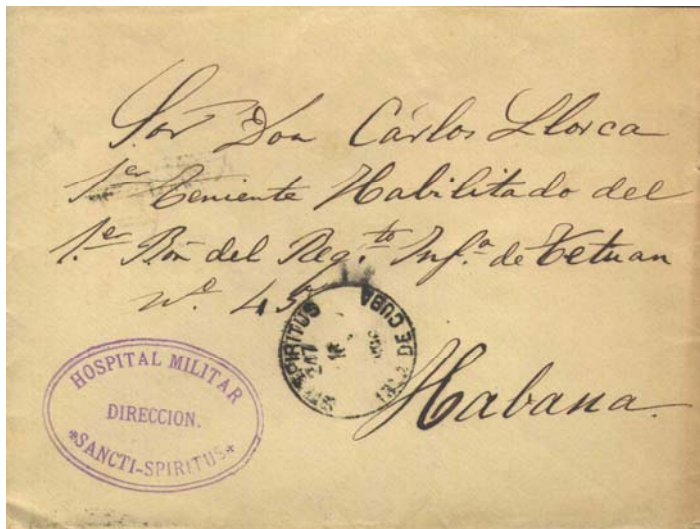 Sor Don Cárlos Llorca
1.er Teniente Habilitado del
1.er Bon del Reg.to Inf.a de Tetuan
nº 45
Habana.
HOSPITAL MILITAR
DIRECCION.
*SANCTI-SPIRITUS*
SPIRITUS
DE CUBA